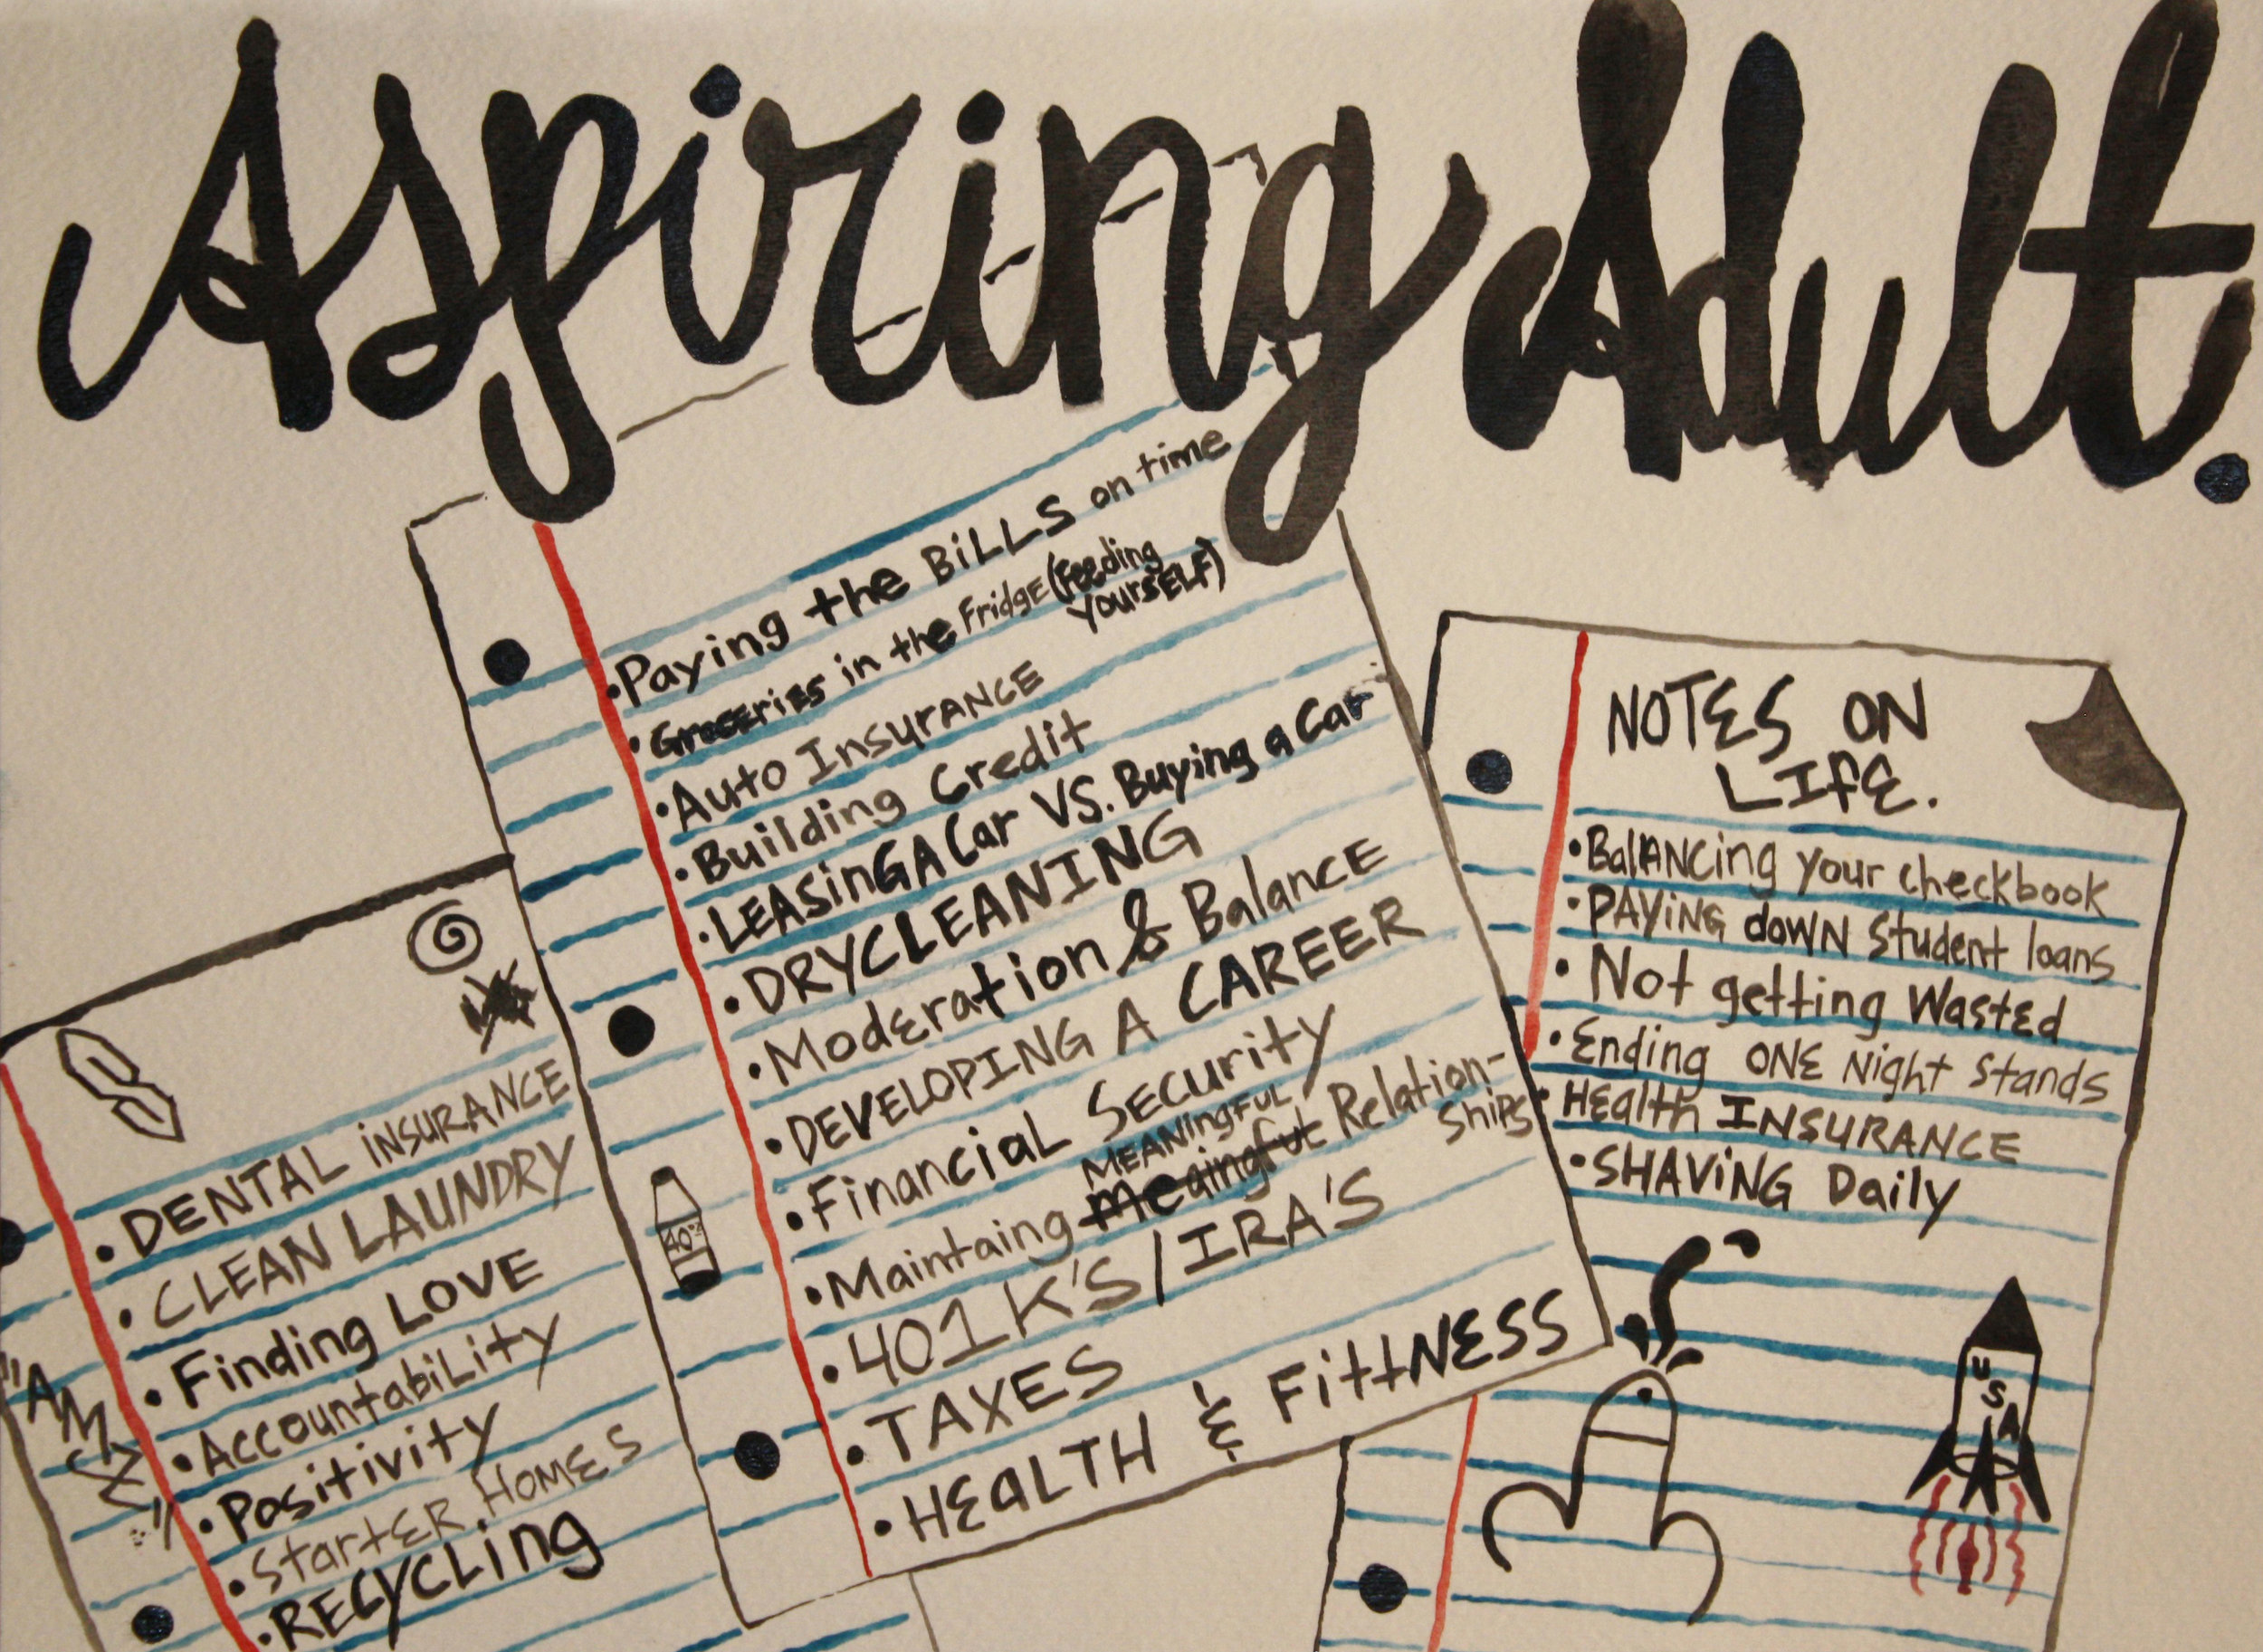 Aspiring Adult.
• DENTAL iNSURANCE
• CLEAN LAUNDRY
• Finding LOVE
• Accountability
• Positivity
• Starter Homes
• RECYCLing
• Paying the BiLLS on time
• Groceries in the Fridge (Feeding
YourSELF)
• Auto InsurANCE
• Building Credit
• LEASinG A Car VS. Buying a Car
• DRYCLEANING
• Moderation & Balance
• DEVELOPING A CAREER
• Financial Security
MEANingFul
• Maintaing meaingful Relation-
ShiPS
• 401K'S / IRA'S
• TAXES
• HEALTH & FittNESS
40oz
NOTES ON
LIfE.
• BalANCing your checkbook
• PAYiNG doWN Student loans
• Not getting Wasted
• Ending ONE Night Stands
• HEalth INSURANCE
• SHAViNG Daily
USA